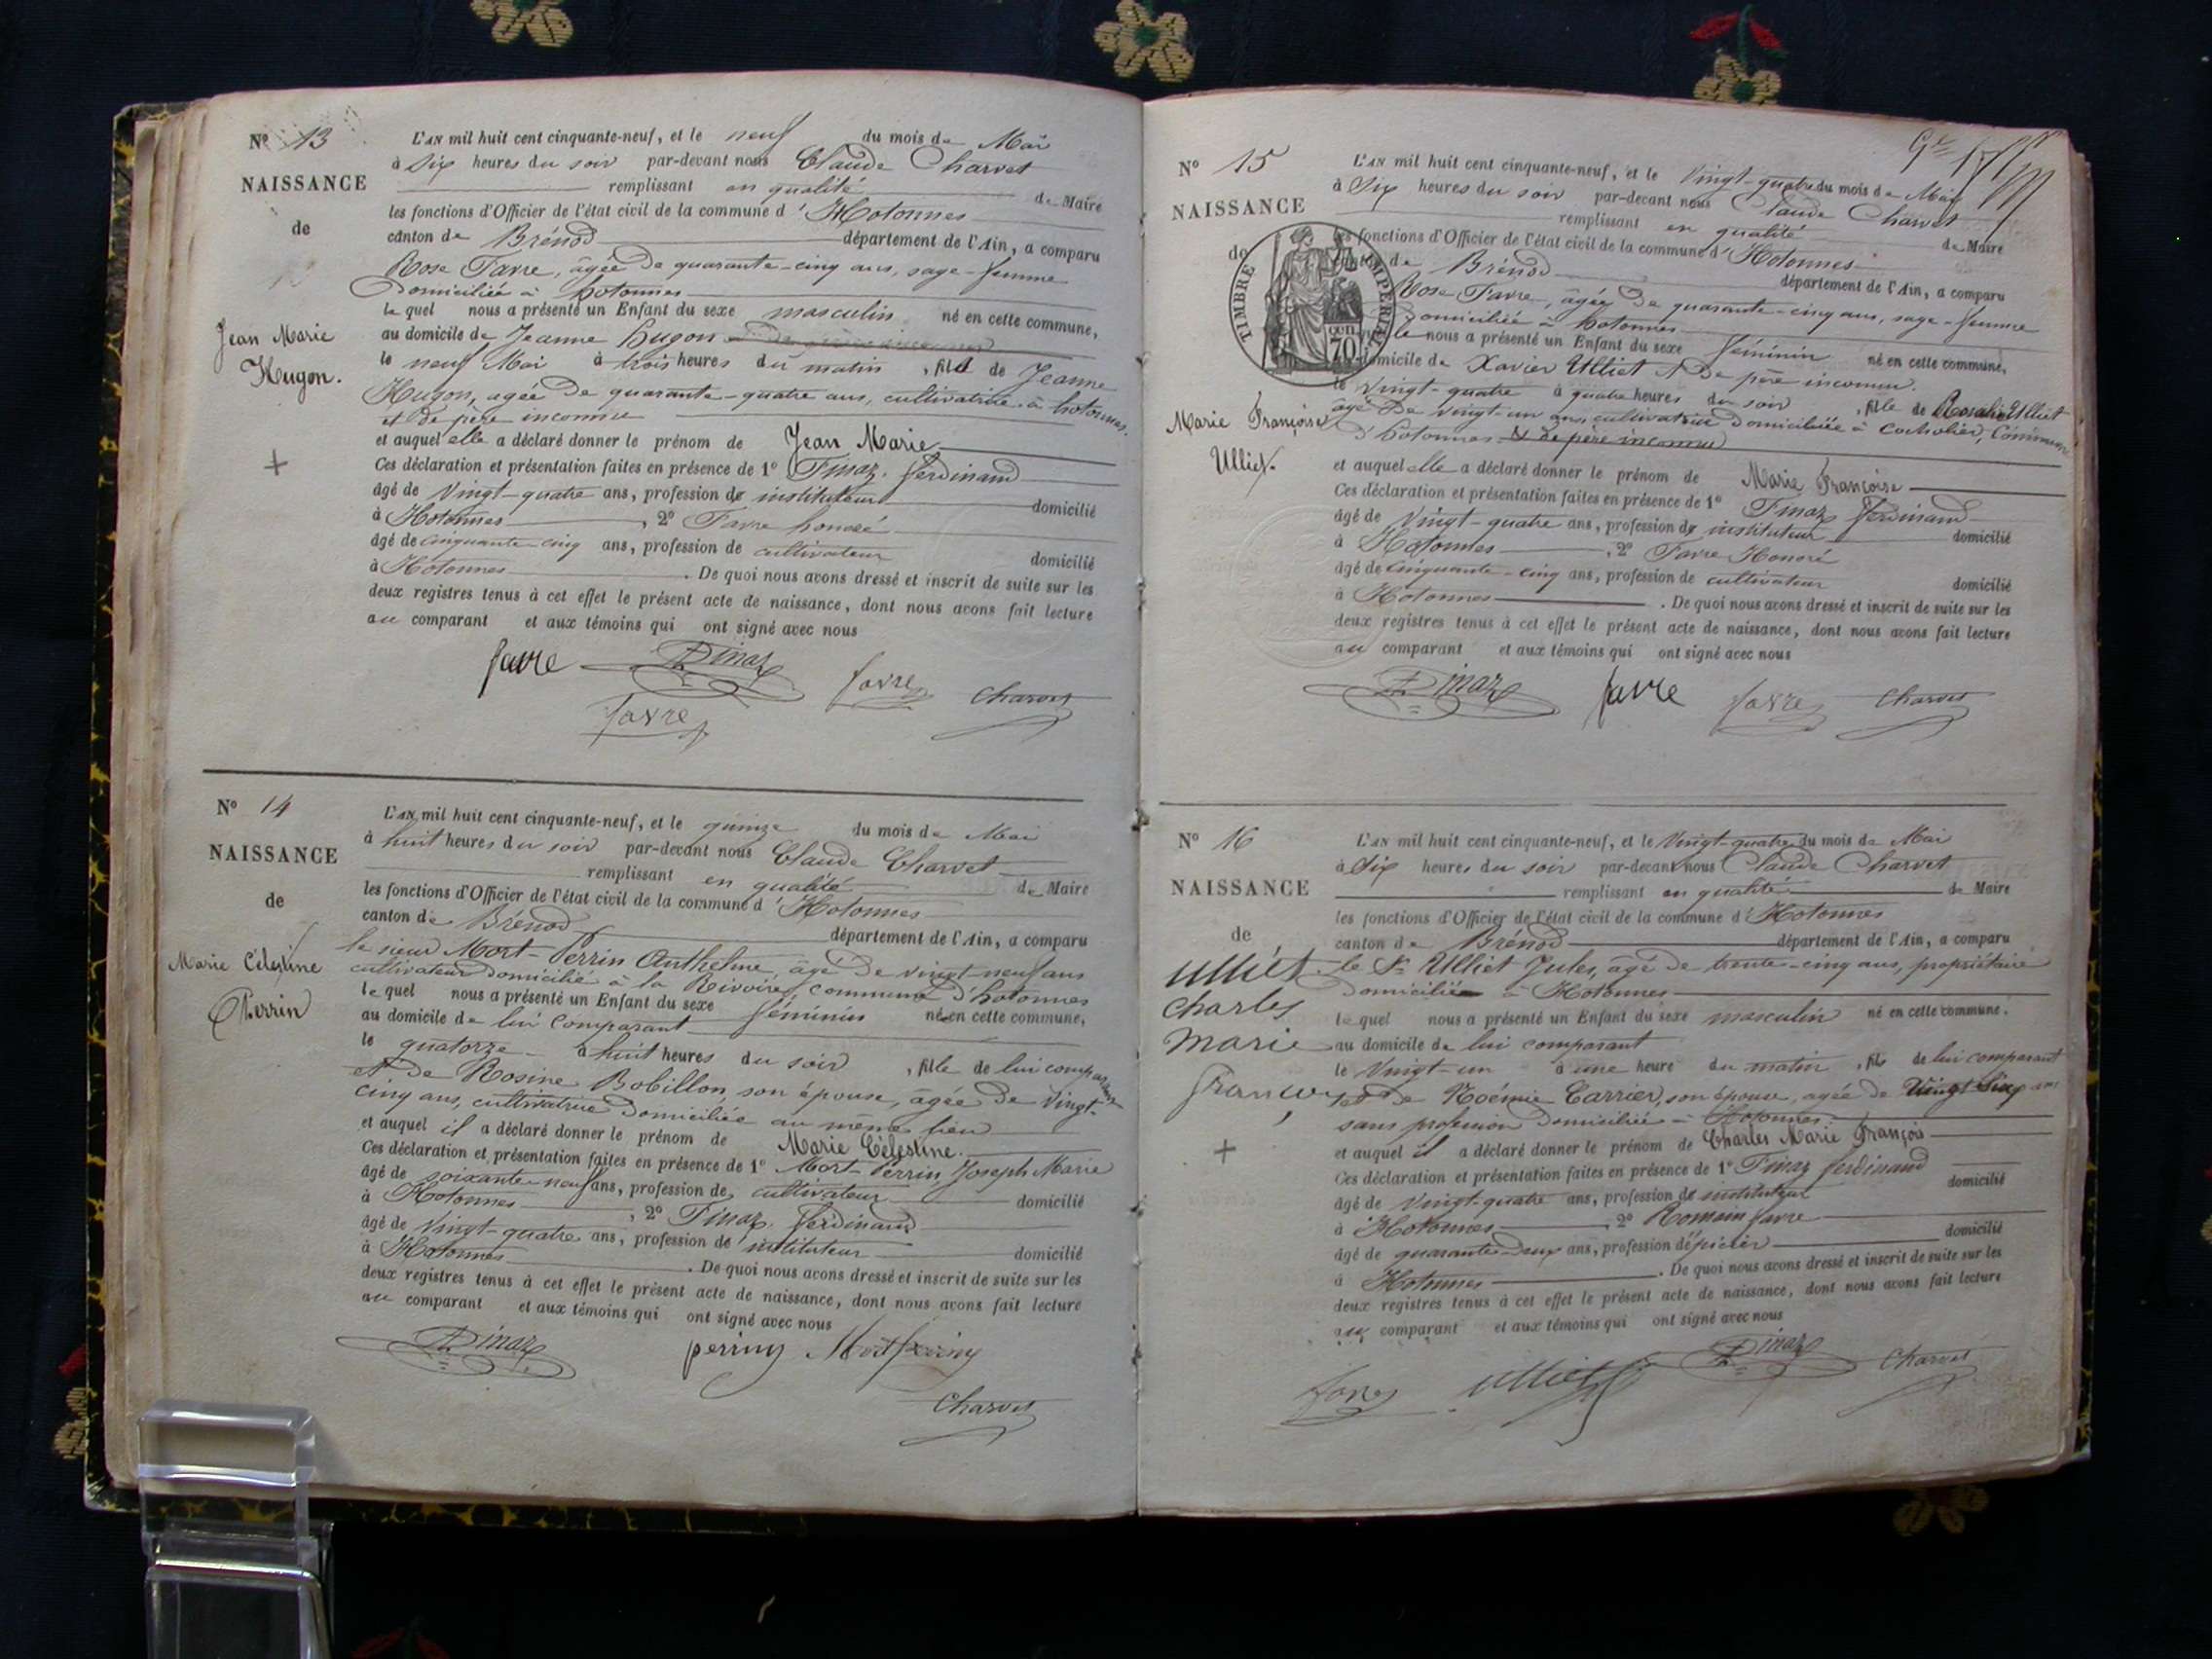 Nº 13
NAISSANCE
de
Jean Marie
Hugon.
L'AN mil huit cent cinquante-neuf, et le neuf du mois de Mai
à six heures du soir par-devant nous Claude Charvet
remplissant en qualité de Maire
les fonctions d'Officier de l'état civil de la commune d'Hotonnes
canton de Brénod département de l'Ain, a comparu
Rose Favre, âgée de quarante-cinq ans, sage-femme
domiciliée à hotonnes
lequel nous a présenté un Enfant du sexe masculin né en cette commune,
au domicile de Jeanne hugon
le neuf Mai à trois heures du matin, fils de Jeanne
Hugon, agée de quarante-quatre ans, cultivatrice à hotonnes.
et de père inconnu
et auquel elle a déclaré donner le prénom de Jean Marie
Ces déclaration et présentation faites en présence de 1º Finaz, ferdinand
âgé de vingt-quatre ans, profession de instituteur domicilié
à Hotonnes, 2º Favre honoré
âgé de cinquante-cinq ans, profession de cultivateur domicilié
à Hotonnes. De quoi nous avons dressé et inscrit de suite sur les
deux registres tenus à cet effet le présent acte de naissance, dont nous avons fait lecture
au comparant et aux témoins qui ont signé avec nous
favre Finaz favre Charvet
favre
Nº 14
NAISSANCE
de
Marie Célestine
Perrin
L'AN mil huit cent cinquante-neuf, et le quinze du mois de Mai
à huit heures du soir par-devant nous Claude Charvet
remplissant en qualité de Maire
les fonctions d'Officier de l'état civil de la commune d'Hotonnes
canton de Brénod département de l'Ain, a comparu
le sieur Mort-Perrin Anthelme, âgé de vingt-neuf ans
cultivateur domicilié à la Rivoire, commune d'hotonnes
lequel nous a présenté un Enfant du sexe féminin né en cette commune,
au domicile de lui comparant
le quatorze à huit heures du soir, fille de lui comparant
et de Rosine Bobillon, son épouse, âgée de vingt-
cinq ans, cultivatrice domiciliée au même lieu
et auquel il a déclaré donner le prénom de Marie Célestine.
Ces déclaration et présentation faites en présence de 1º Mort-Perrin, Joseph Marie
âgé de soixante-neuf ans, profession de cultivateur domicilié
à Hotonnes, 2º Finaz, ferdinand
âgé de vingt-quatre ans, profession de instituteur domicilié
à Hotonnes. De quoi nous avons dressé et inscrit de suite sur les
deux registres tenus à cet effet le présent acte de naissance, dont nous avons fait lecture
au comparant et aux témoins qui ont signé avec nous
Finaz perrin Mort perrin
Charvet
Nº 15
NAISSANCE
de
TIMBRE IMPERIAL
70
Marie Françoise
Ulliet.
L'AN mil huit cent cinquante-neuf, et le vingt-quatre du mois de Mai
à six heures du soir par-devant nous Claude Charvet
remplissant en qualité de Maire
les fonctions d'Officier de l'état civil de la commune d'Hotonnes
canton de Brénod département de l'Ain, a comparu
Rose Favre, âgée de quarante-cinq ans, sage-femme
domiciliée à hotonnes
nous a présenté un Enfant du sexe féminin né en cette commune,
domicile de Xavier Ulliet et de père inconnu.
le vingt-quatre à quatre heures du soir, fille de Rosalie Ulliet
âgé de vingt-un ans, cultivatrice domiciliée à Commune
d'hotonnes & de père inconnu
et auquel elle a déclaré donner le prénom de Marie Françoise
Ces déclaration et présentation faites en présence de 1º Finaz ferdinand
âgé de vingt-quatre ans, profession de instituteur domicilié
à Hotonnes, 2º Favre Honoré
âgé de cinquante-cinq ans, profession de cultivateur domicilié
à Hotonnes. De quoi nous avons dressé et inscrit de suite sur les
deux registres tenus à cet effet le présent acte de naissance, dont nous avons fait lecture
au comparant et aux témoins qui ont signé avec nous
Finaz favre favre Charvet
Nº 16
NAISSANCE
de
Ulliet
Charles
Marie
françois
L'AN mil huit cent cinquante-neuf, et le vingt-quatre du mois de Mai
à six heures du soir par-devant nous Claude Charvet
remplissant en qualité de Maire
les fonctions d'Officier de l'état civil de la commune d'Hotonnes
canton de Brénod département de l'Ain, a comparu
le Sr Ulliet Jules, âgé de trente-cinq ans, propriétaire
domicilié à Hotonnes
lequel nous a présenté un Enfant du sexe masculin né en cette commune,
au domicile de lui comparant
le vingt-un à une heure du matin, fils de lui comparant
et de Noémie Carrier, son épouse, agée de vingt six ans
sans profession domiciliée à Hotonnes
et auquel il a déclaré donner le prénom de Charles Marie François
Ces déclaration et présentation faites en présence de 1º Finaz ferdinand
âgé de vingt-quatre ans, profession de instituteur domicilié
à Hotonnes, 2º Romain favre
âgé de quarante-deux ans, profession d'épicier domicilié
à Hotonnes. De quoi nous avons dressé et inscrit de suite sur les
deux registres tenus à cet effet le présent acte de naissance, dont nous avons fait lecture
au comparant et aux témoins qui ont signé avec nous
favre Ulliet Finaz Charvet